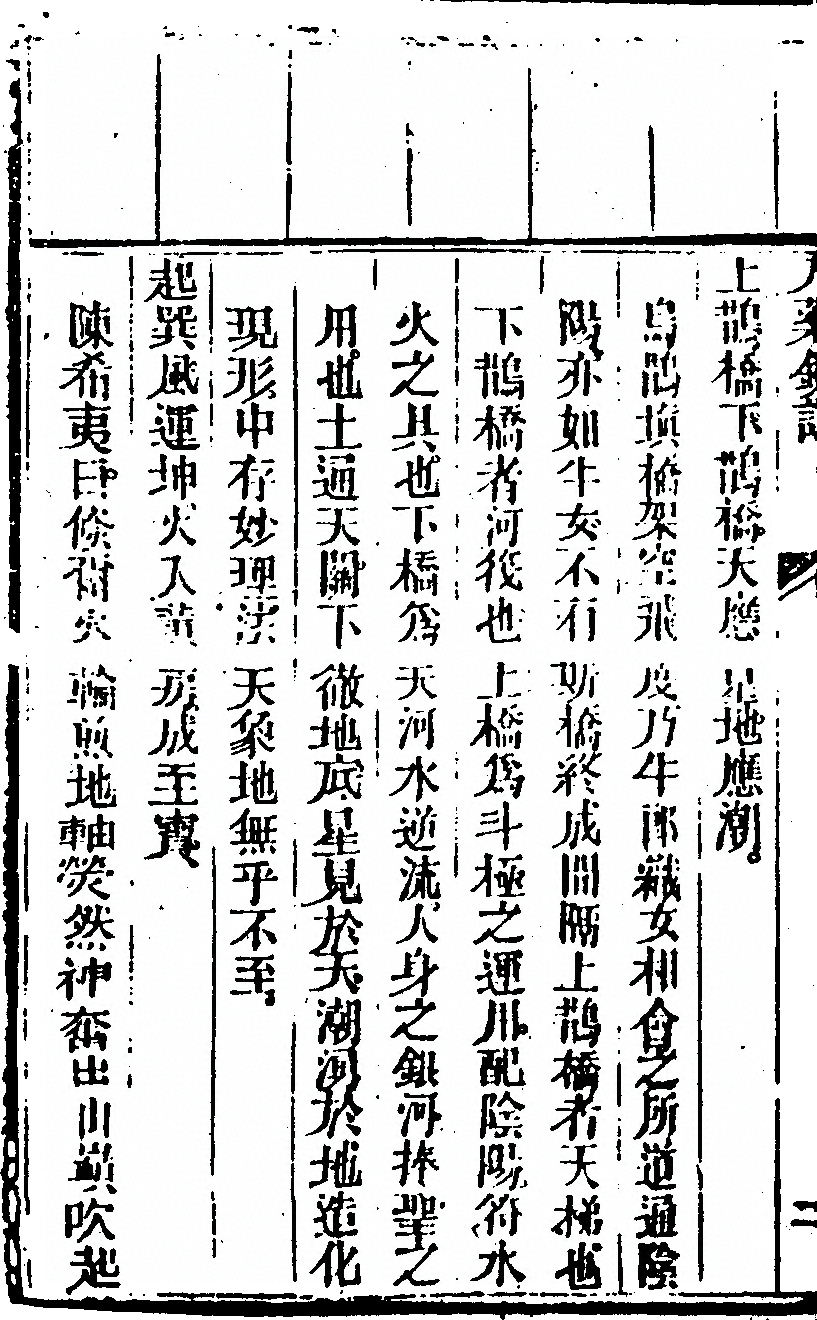 上鵲橋下鵲橋天應星地應潮
烏鵲塡橋架空飛度乃牛郎織女相會之所道通陰
陽亦如牛女不有斯橋終成間隔上鵲橋者天梯也
下鵲橋者河筏也上橋爲斗極之運用配陰陽符水
火之具也下橋爲天河水逆流人身之銀河捧聖之
用也上通天關下徹地底星見於天潮汐於地造化
現形中存妙理法天象地無乎不至
起巽風運坤火入黃房成至寶
陳希夷曰倏爾火輪煎地軸熒然神奔出山巔吹起